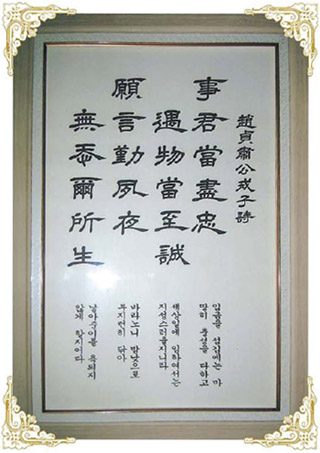 趙貞肅公戒子詩
事君當盡忠
遇物當至誠
願言勤夙夜
無忝爾所生
임금을 섬김에는 마
땅히 충성을 다하고
세상일에 임하여서는
지성스러울지니라
바라노니 밤낮으로
부지런히 닦아
낳아준이를 욕되지
않게 할지이다